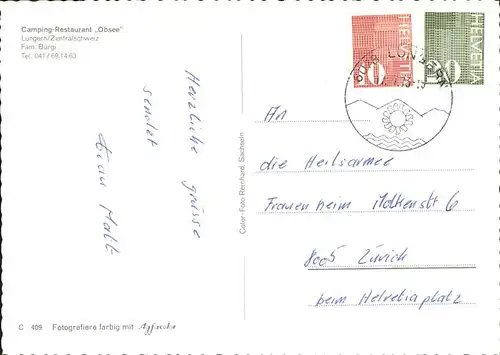 Camping-Restaurant „Obsee"
Lungern/Zentralschweiz
Fam. Bürgi
Tel. 041/69.14.63
Herzliche grüsse
sendet
Frau Matt
C 409 Fotografiere farbig mit Agfacolor
Color-Foto Reinhard, Sachseln
HELVETIA
10
HELVETIA
LUNGERN
An
die Heilsarmee
Frauenheim Molkenstr 6
8005 Zürich
beim Helvetiaplatz